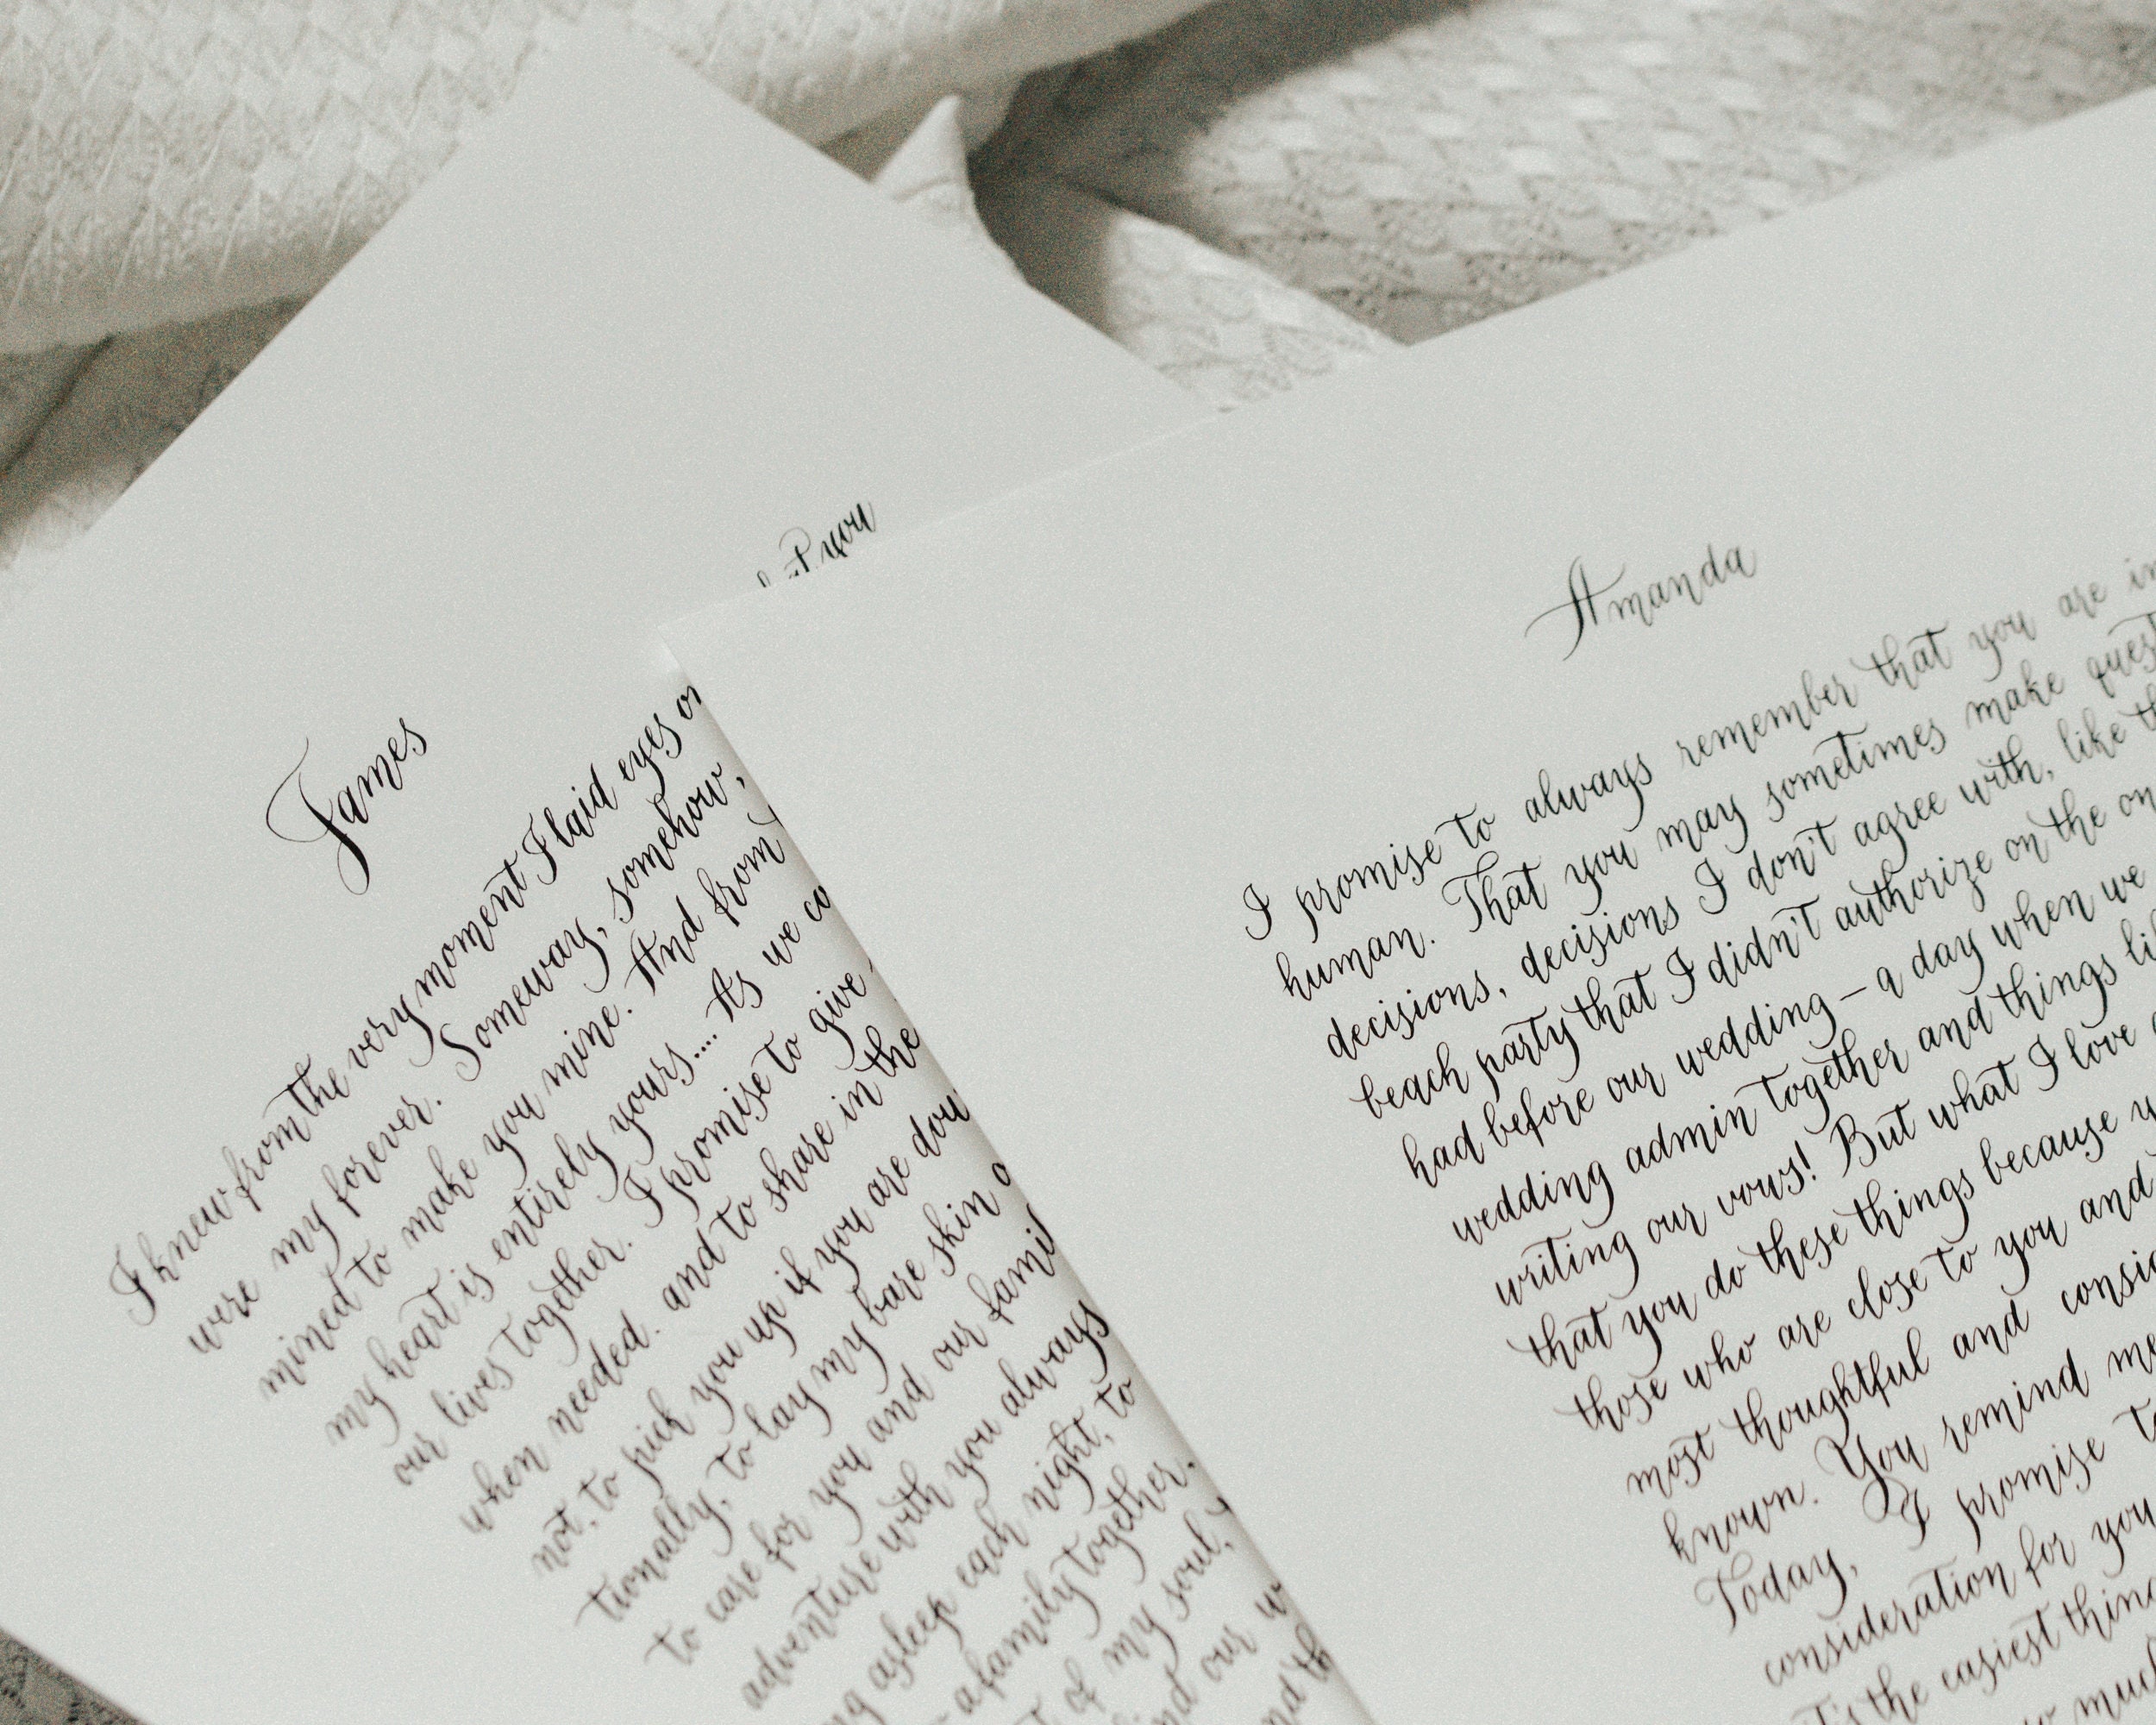 James
I knew from the very moment I laid eyes on
were my forever. Someway, somehow,
mined to make you mine. And from
my heart is entirely yours.... As we co
our lives together. I promise to give
when needed. and to share in the
not, to pick you up if you are dou
tionally, to lay my bare skin o
to care for you and our famil
adventure with you always
ng asleep each night, to
a family together.
of my soul,
nd our w
nd th
you
Amanda
I promise to always remember that you are in
human. That you may sometimes make quest
decisions, decisions I don't agree with, like th
beach party that I didn't authorize on the on
had before our wedding — a day when we
wedding admin together and things li
writing our vows! But what I love
that you do these things because y
those who are close to you and
most thoughtful and consid
known. You remind me
Today, I promise to
consideration for you
t's the easiest thing
much